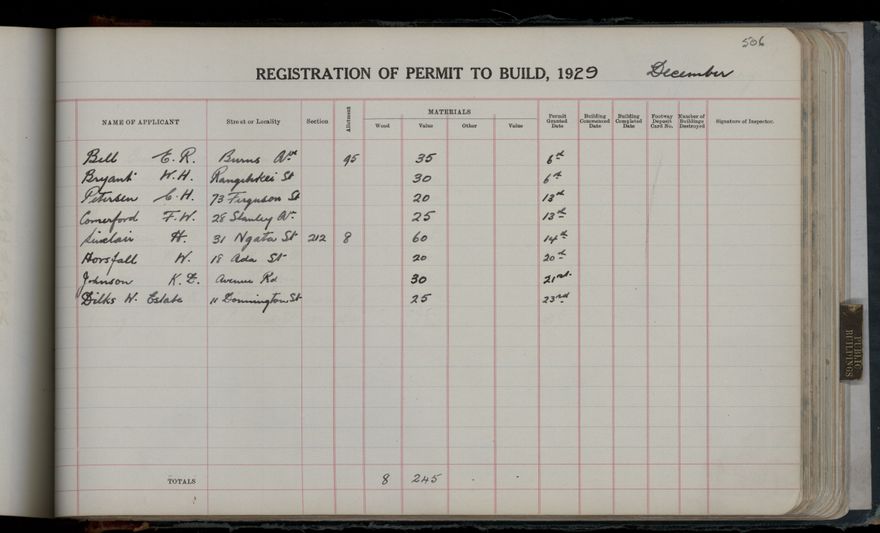 506
REGISTRATION OF PERMIT TO BUILD, 1929 December
NAME OF APPLICANT Street or Locality Section Allotment MATERIALS Permit Granted Date Building Commenced Date Building Completed Date Footway Deposit Card No. Number of Buildings Destroyed Signature of Inspector.
Wood Value Other Value
Bell E. R. Burns Ave 95 35 6th
Bryant W. H. Rangitikei St 30 6th
Petersen C. H. 73 Ferguson St 20 13th
Comerford F. W. 28 Stanley Av. 25 13th
Sinclair H. 31 Ngata St 212 8 60 14th
Horsfall W. 18 Ada St 20 20th
Johnson K. Avenue Rd 30 21st
Dilks W. Estate 11 Donnington St 25 23rd
TOTALS 8 245 . .
PUBLIC BUILDINGS